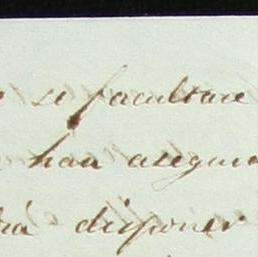 se facultare
han asegura
rá disponer